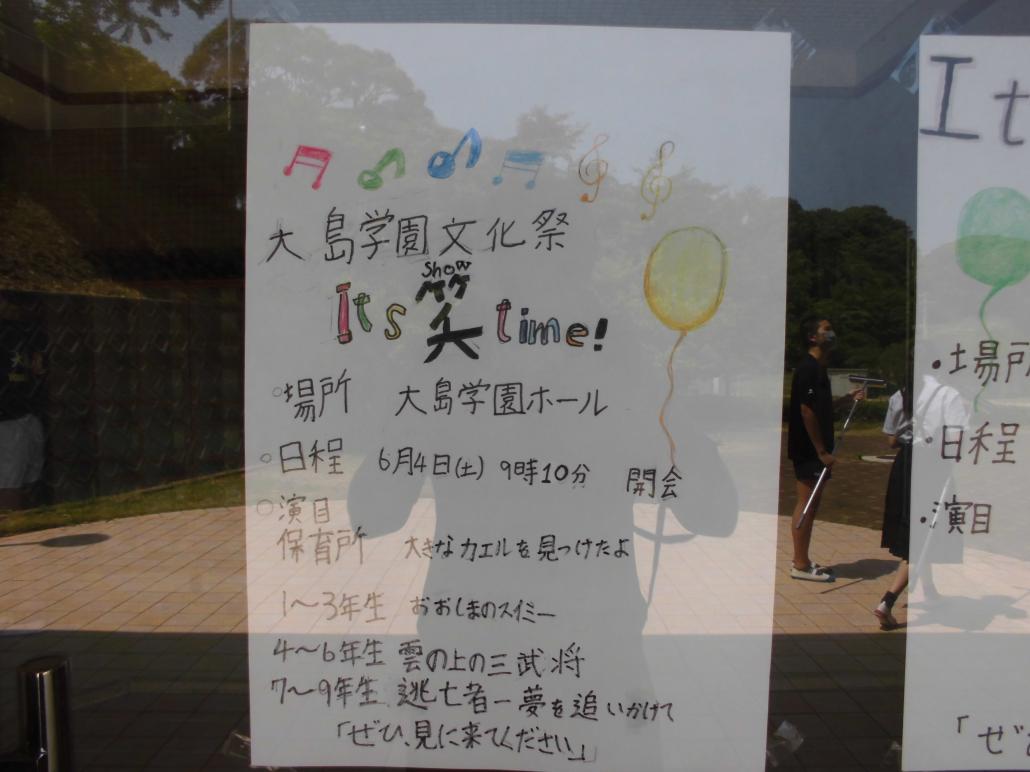 大島学園文化祭
show
Its 笑 time!
○場所 大島学園ホール
○日程 6月4日(土) 9時10分 開会
○演目
保育所 大きなカエルを見つけたよ
1～3年生 おおしまのスイミー
4～6年生 雲の上の三武将
7～9年生 逃亡者ー夢を追いかけて
「ぜひ、見に来てください」
It
・場所
・日程
・演目
「ぜひ